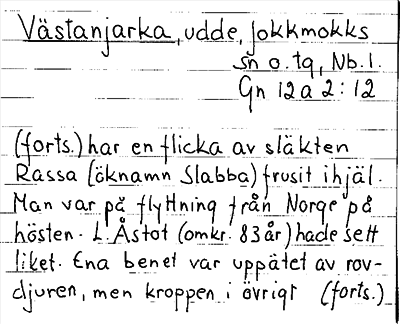 Västanjarka, udde, Jokkmokks
sn o. tg, Nb. l.
Gn 12 a 2:12
(forts.) har en flicka av släkten
Rassa (öknamn Slabba) frusit ihjäl.
Man var på flyttning från Norge på
hösten. L. Åstot (omkr. 83 år) hade sett
liket. Ena benet var uppätet av rov-
djuren, men kroppen i övrigt (forts.)